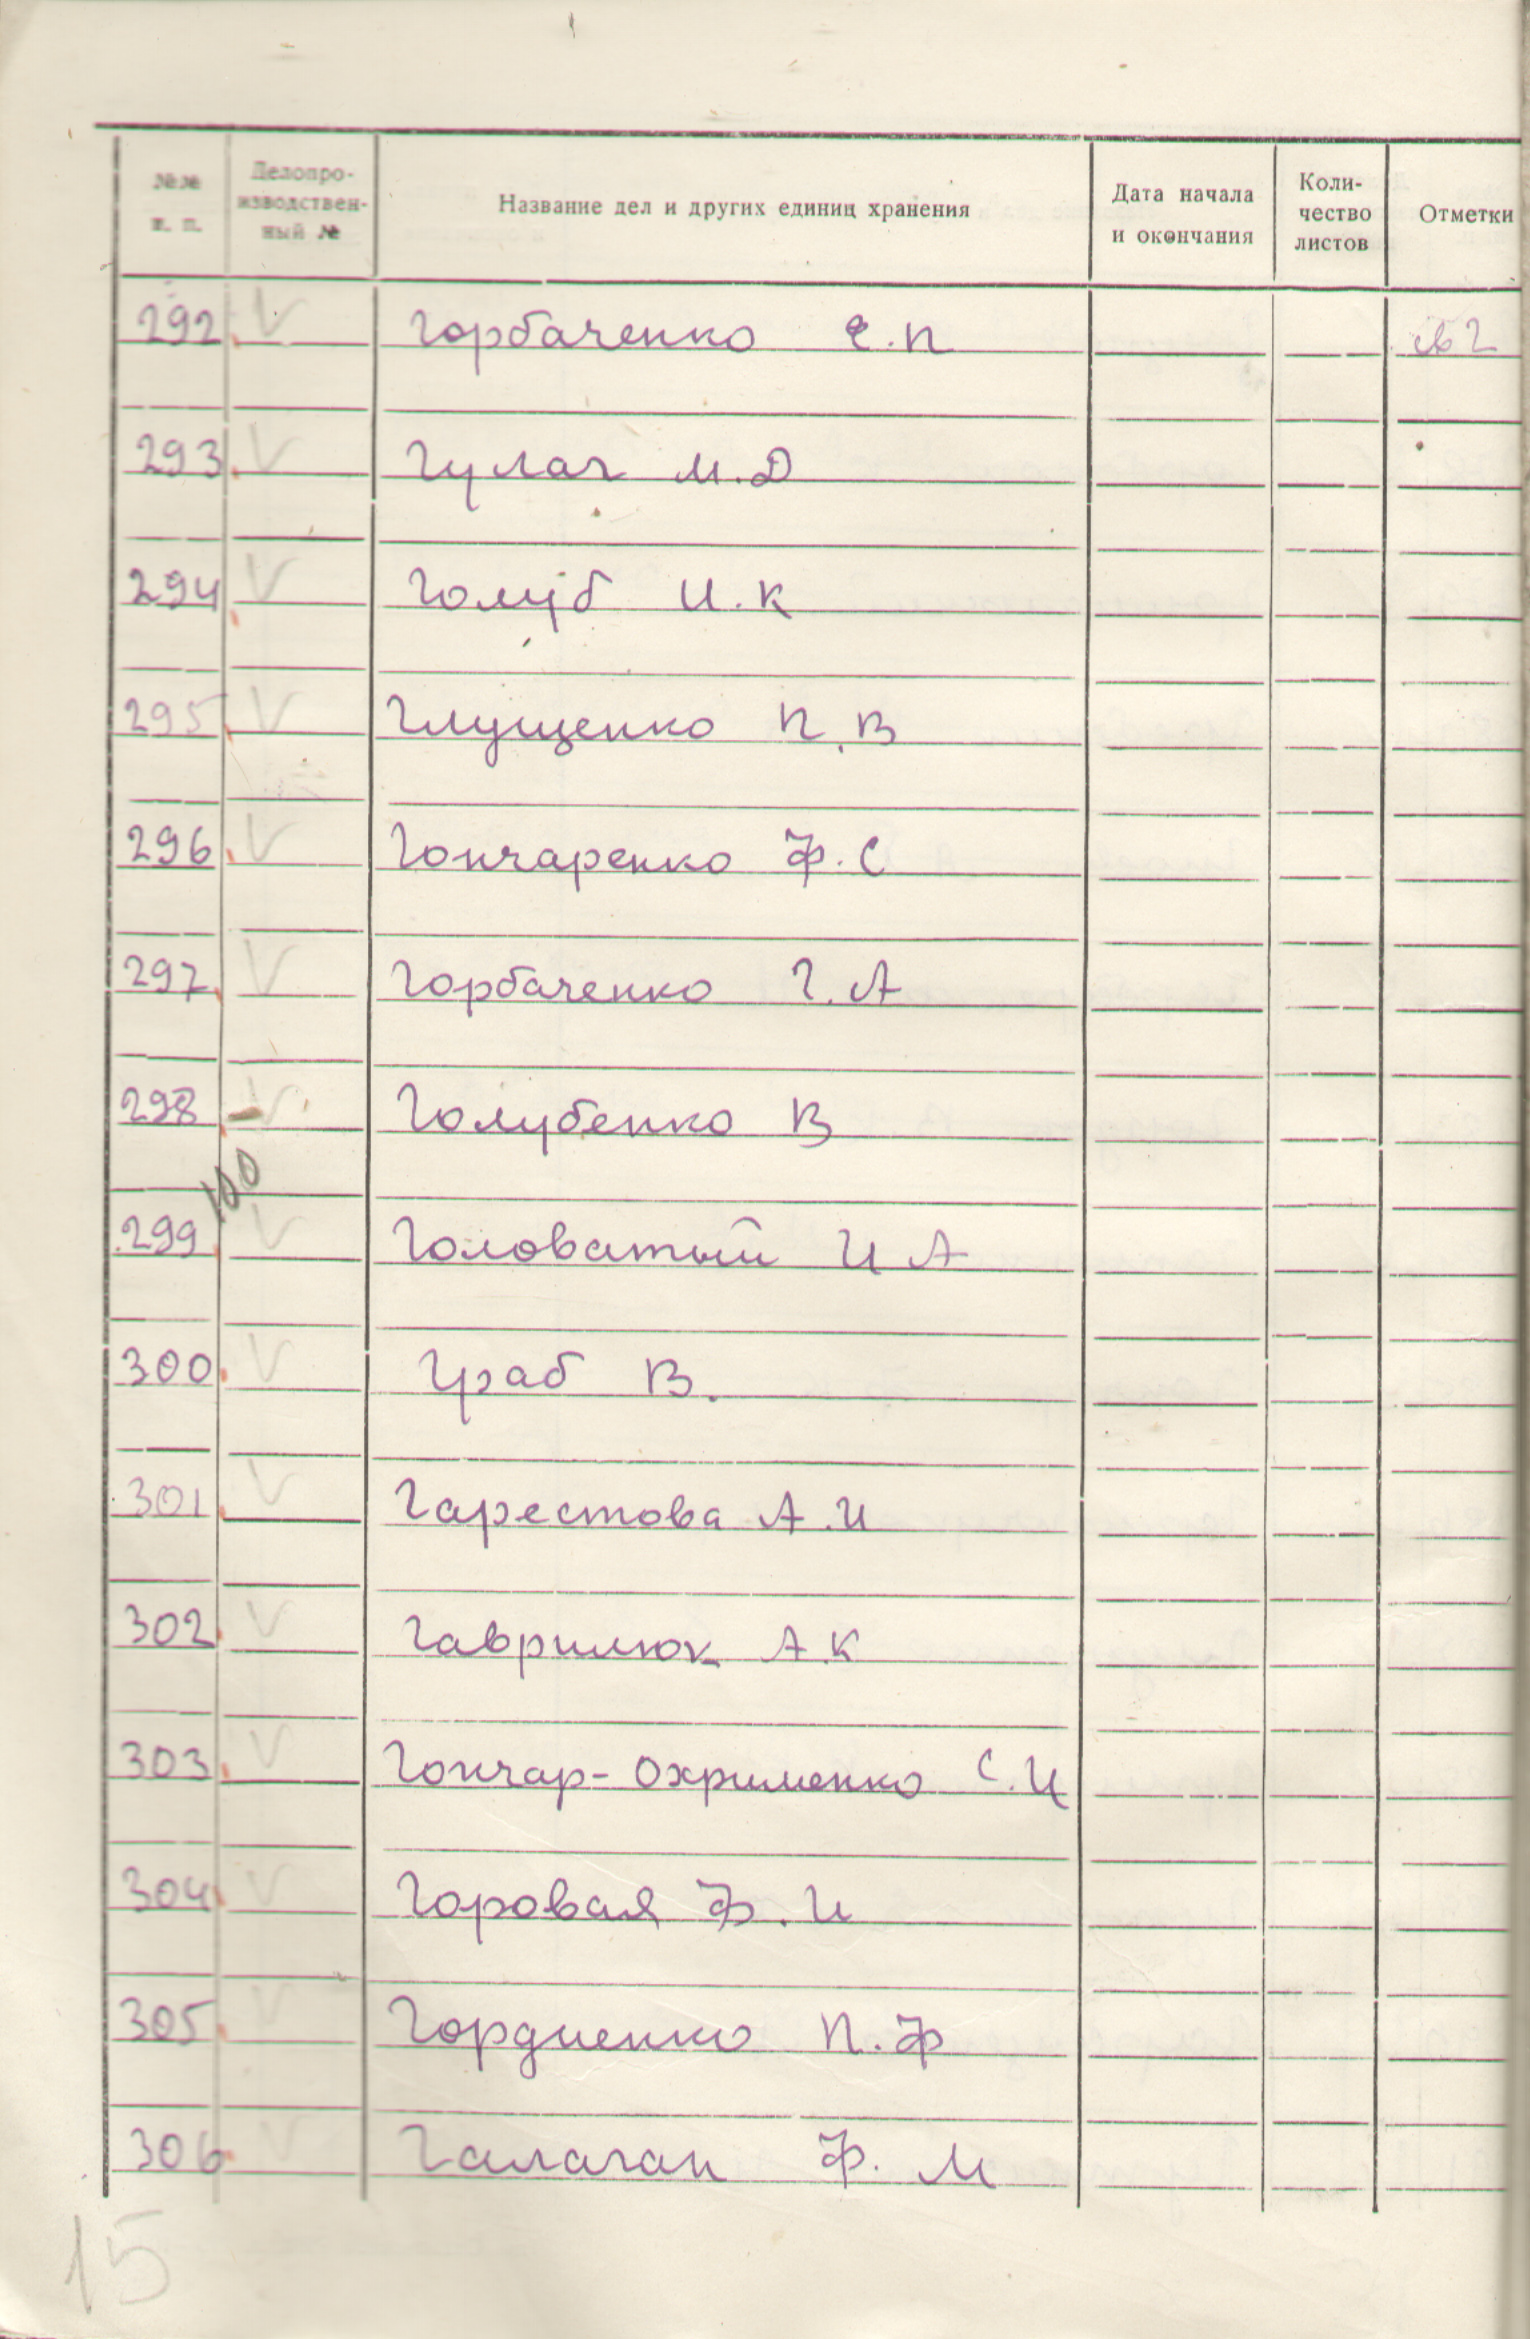 №№ п. п. Делопроизводственный № Название дел и других единиц хранения Дата начала и окончания Количество листов Отметки
292 V Горбаченко Е.П св 2
293 V Гулач М.Д
294 V Голуб И.К
295 V Глущенко П.В
296 V Гончаренко Ф.С
297 V Горбаченко Г.А
298 V Голубенко В
100
299 V Головатый И А
300 V Граб В.
301 V Гарестова А.И
302 V Гаврилюк А.К
303 V Гончар-Охрименко С.И
304 V Горовая Ф.И
305 V Гордиенко П.Ф
306 V Галаган Ф. М
15